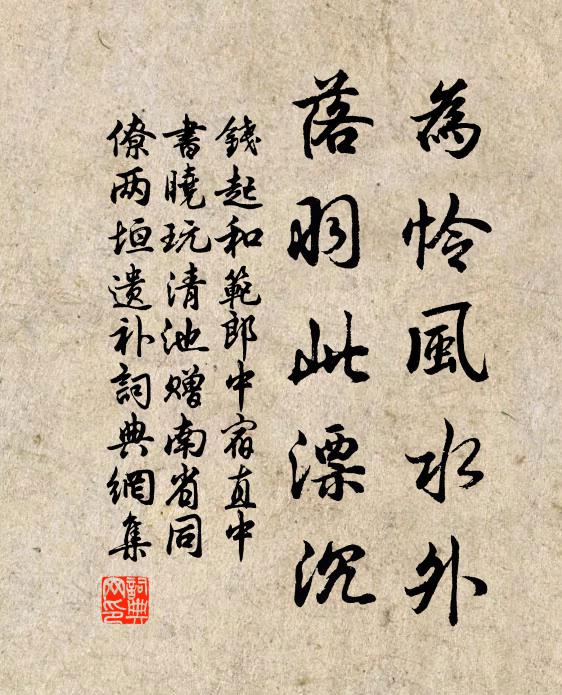 為怜風水外
落羽此漂沉
錢起和範郎中宿直中
書曉玩清池贈南省同
僚两垣遺补詞典網集
詞典网印